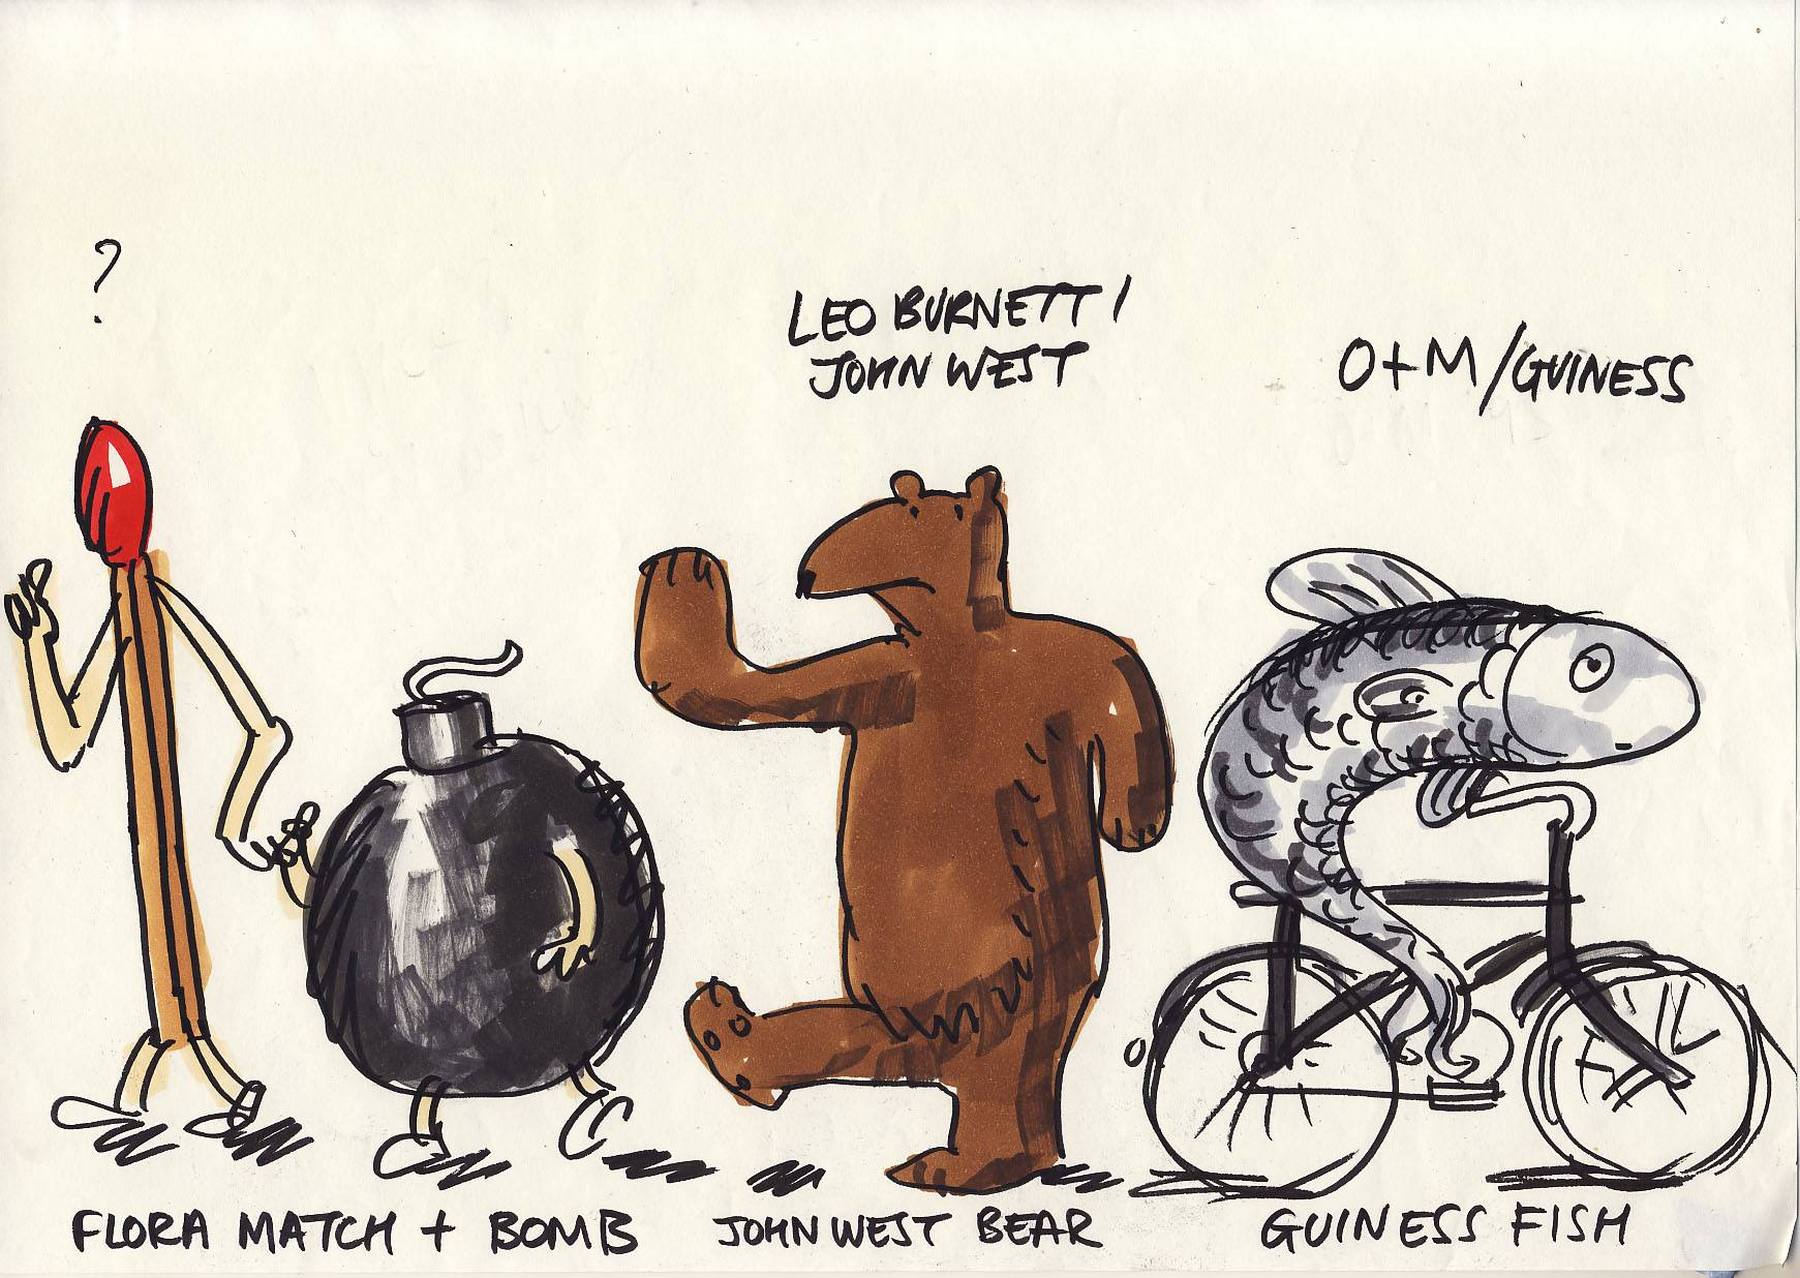 ?
LEO BURNETT /
JOHN WEST
O+M/GUINESS
FLORA MATCH + BOMB
JOHN WEST BEAR
GUINESS FISH